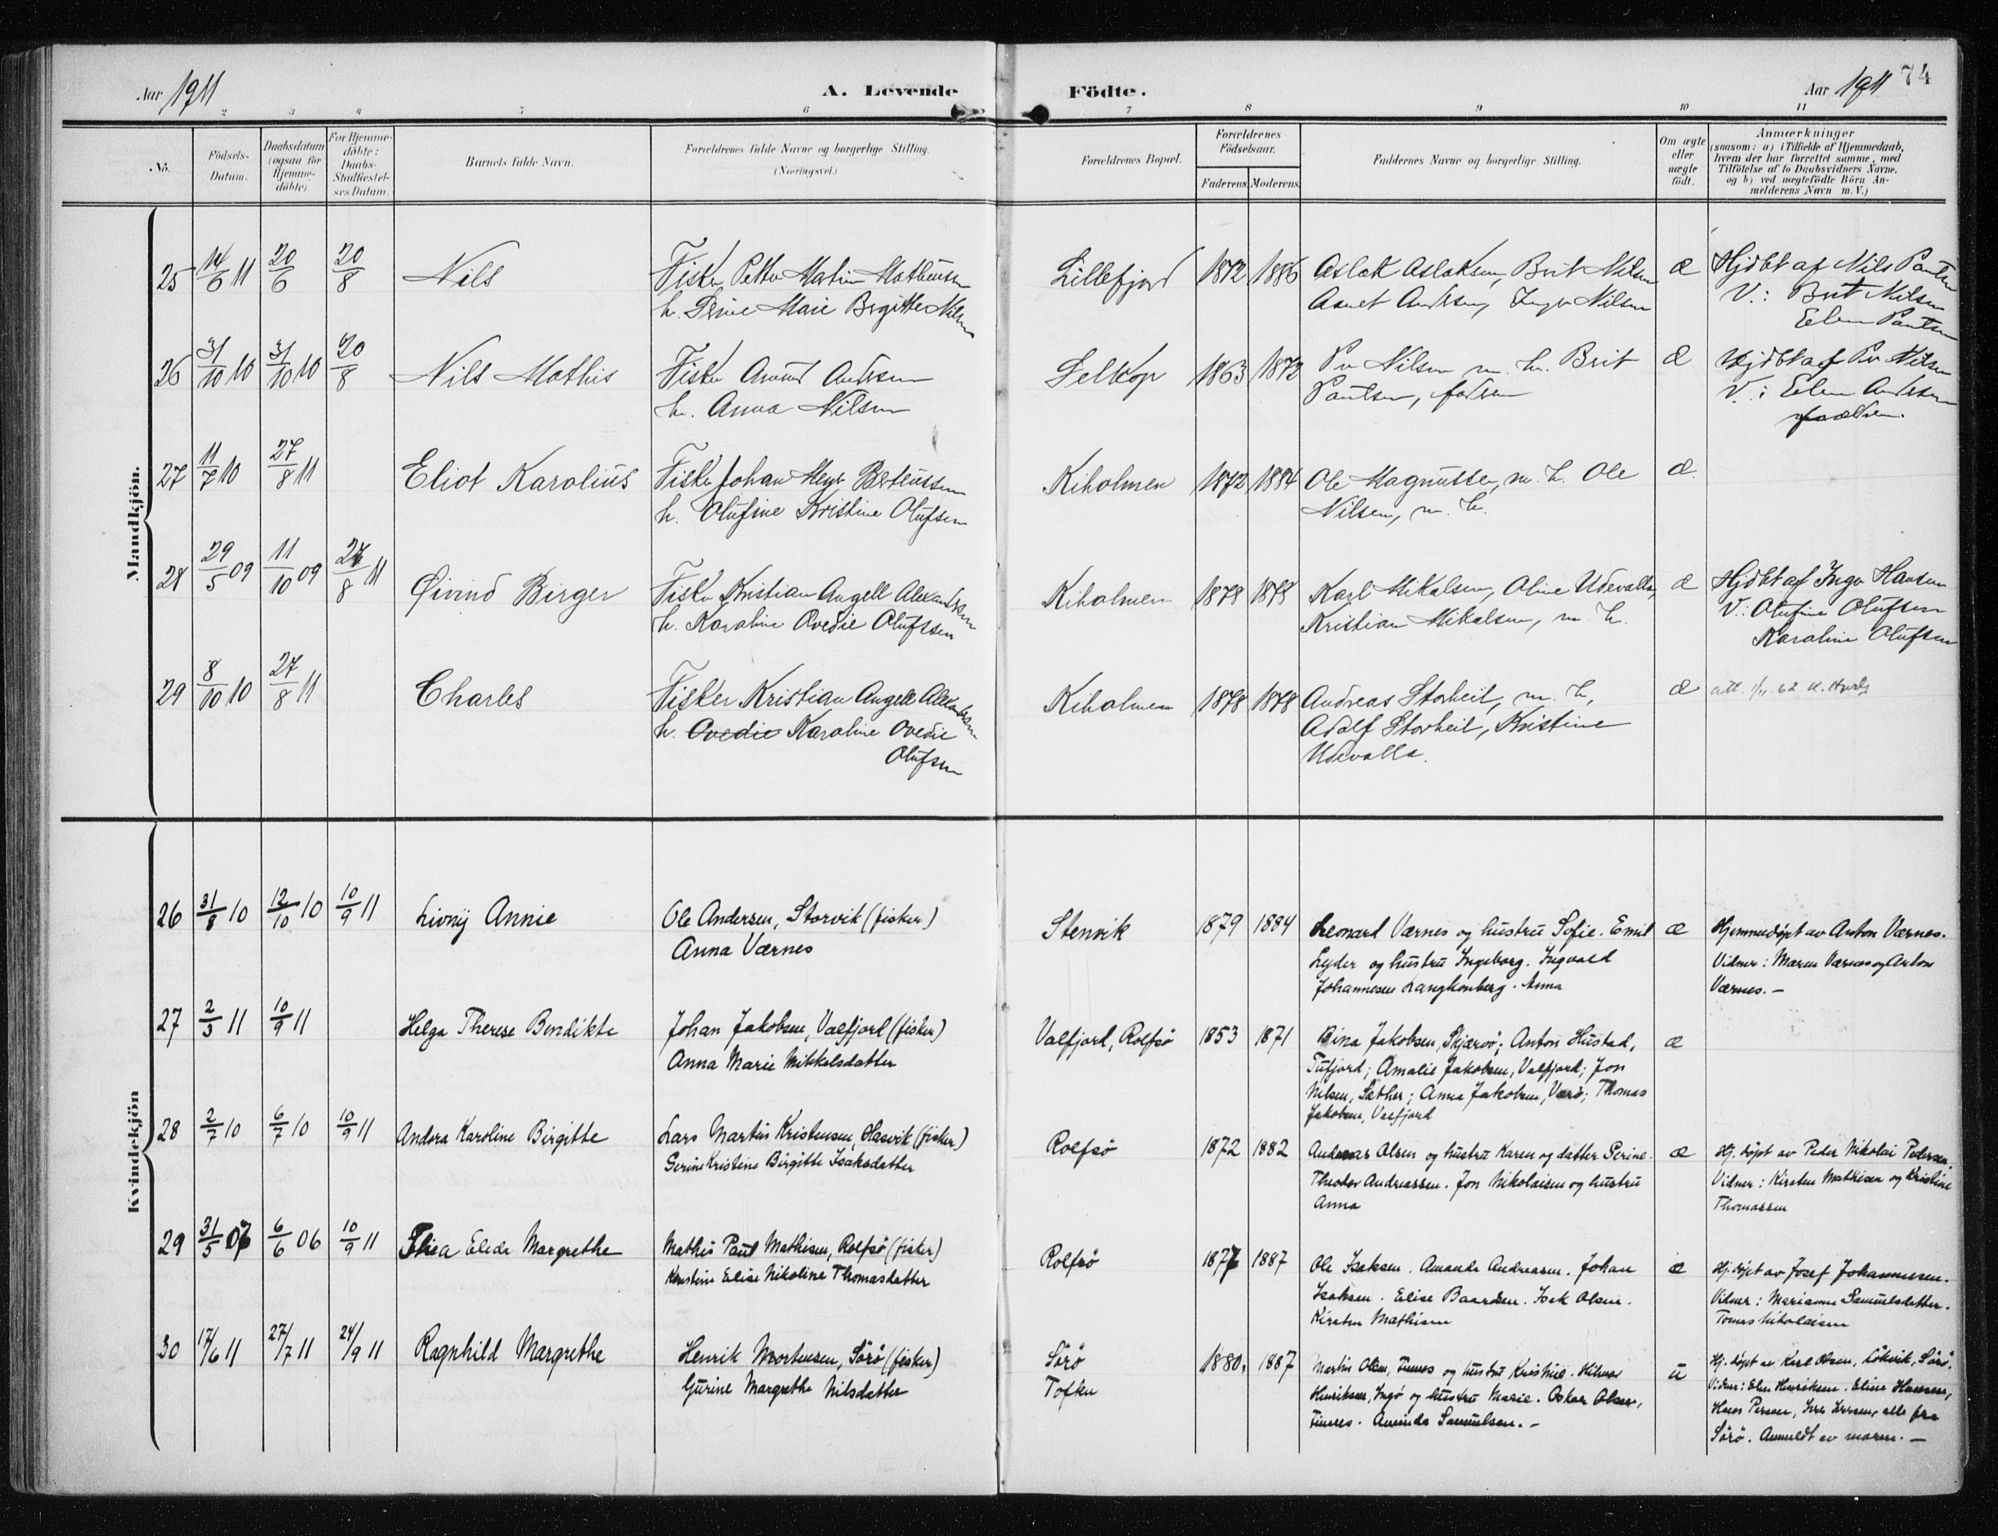 Aar 1911
A. Levende
Födte.
Aar 1911
74
2 3 4 5 6 7 8 9 10 11
No.
Födsels-
Datum.
Daabsdatum
(ogsaa for
Hjemme-
döbte).
For Hjemme-
döbte:
Daabs-
Stadfæstel-
ses Datum.
Barnets fulde Navn.
Forældrenes fulde Navne og borgerlige Stilling.
(Næringsvei.)
Forældrenes Bopæl.
Forældrenes
Födselsaar.
Faderens. Moderens.
Faddernes Navne og borgerlige Stilling.
Om ægte
eller
uægte
födt.
Anmærkninger
(saasom: a) i Tilfælde af Hjemmedaab,
hvem der har forrettet samme, med
Tilföielse af to Daabsvidners Navne.
og b) ved uægtefödte Börn An-
melderens Navn m. V.)
Mandkjön.
25 14/6 11 20/6 20/8 Nils
Fisker Petter Martin Mathisen
h. Marie Birgitte Nilsen
Lillefjord 1872 1886
Aslak Aslaksen, Brit Nilsen
Andersen, Inga Nilsen
æ
Hjdbt af Nils Paulsen
V.: Brit Nilsen
Elen Paulsen
26 31/10 10 31/10 10 20/8 Nils Mathis
Fisker Amund Andersen
h. Anna Nilsen
Selkop 1863 1872
Per Nilsen m. h. Brit
Paulsen, faderen
æ
Hjdbt af Per Nilsen
V.: Elen Andersen
27 11/7 10 27/8 11 Eliot Karolius
Fisker Johan Meyer Berteussen
h. Olufine Kristine Olufsen
Kiholmen 1872 1884
Ole Magnussen, m. h. Ole
Nilsen, m. h.
æ
28 29/5 09 11/10 09 27/8 11 Øivind Birger
Fisker Kristian Angell Alexandersen
h. Karoline Ovedie Olufssen
Kiholmen 1878 1878
Karl Mikalsen, Oline Udevalla,
Kristian Mikalsen, m. h.
æ
Hjdbt af Inga Hansen
V.: Olufine Olufsen
Karoline Olufsen
29 8/10 10 27/8 11 Charles
Fisker Kristian Angell Alexandersen
h. Ovedie Karoline Ovedie
Olufsen
Kiholmen 1878 1878
Andreas Storheil, m. h,
Adolf Storheil, Kristine
Udevalla.
æ
att. 1/11 62
Kvindekjön
26 31/8 10 12/10 10 10/9 11 Livnÿ Annie
Ole Andersen, Storvik (fisker)
Anna Værnes
Stenvik 1879 1884
Leonard Værnes og hustru Sofie. Emil
Lyder og hustru Ingeborg. Ingvald
Johannesen Langkonberg. Anna
æ
Hjemmedøpt av Anton Værnes.
Vidner: Maren Værnes og Anton
Værnes. —
27 2/3 11 10/9 11 Helga Therese Bendikte
Johan Jakobsen, Valfjord (fisker)
Anna Marie Mikkelsdatter
Valfjord, Rolfsø 1853 1871
Bina Jakobsen, Skjærø; Anton Hustad,
Tufjord; Amalie Jakobsen, Valfjord; Jon
Nilsen, Sæther; Anna Jakobsen, Værø; Thomas
Jakobsen, Valfjord
æ
28 2/7 10 6/7 10 10/9 11 Andora Karoline Birgitte
Lars Martin Kristensen, Hasvik (fisker)
Serine Kristine Birgitte Isaksdatter
Rolfsø 1872 1882
Olsen og hustru Karen og datter Serine.
Theodor Andreassen. Jon Nikolaisen og hustru
Anna
æ
Hj. døpt av Peder Nikolai Pedersen.
Vidner: Kirsten Mathisen og Kristine
Thomassen
29 31/5 06 6/6 06 10/9 11 Thea Elida Margrethe
Mathis Paul Mathisen, Rolfsø (fisker)
Kirstine Elise Nikoline Thomasdatter
Rolfsø 1877 1887
Ole Isaksen. Amanda Andreasen. Johan
Isaksen. Elise Baardsen. Isak Olsen.
Kirsten Mathisen
æ
Hj. døpt av Josef Johannesen.
Vidner: Marianne Samuelsdatter.
Tomas Nikolaisen
30 17/6 11 27/7 11 24/9 11 Ragnhild Margrethe
Henrik Mortensen, Sørø (fisker)
Gurine Margrethe Nilsdatter
Sørø
Tofku
1880. 1887
Martin Olsen, Finnes og hustru Kristine. Hilmar
Henriksen, Ingø og hustru Marie. Oskar Olsen,
Finnes. Aminda Samuelsen. —
u
Hj. døpt av Karl Olsen, Lökvik, Sørø.
Vidner: Elen Henriksen. Elina Hansen,
Hans Persen, alle fra
Sørø. Anmeldt av moren. —